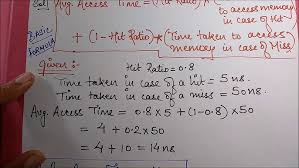 Sol
Avg. Access Time = (Hit Ratio) * to access memory
in case of Hit
BASIC FORMULA
+ (1 - Hit Ratio) * (Time taken to access
memory in case of Miss)
Given:- Hit Ratio = 0.8
Time taken in case of a hit = 5 ns.
Time taken in case of a miss = 50 ns.
Avg. Access Time = 0.8 × 5 + (1 - 0.8) × 50
= 4 + 0.2 × 50
= 4 + 10 = 14 ns